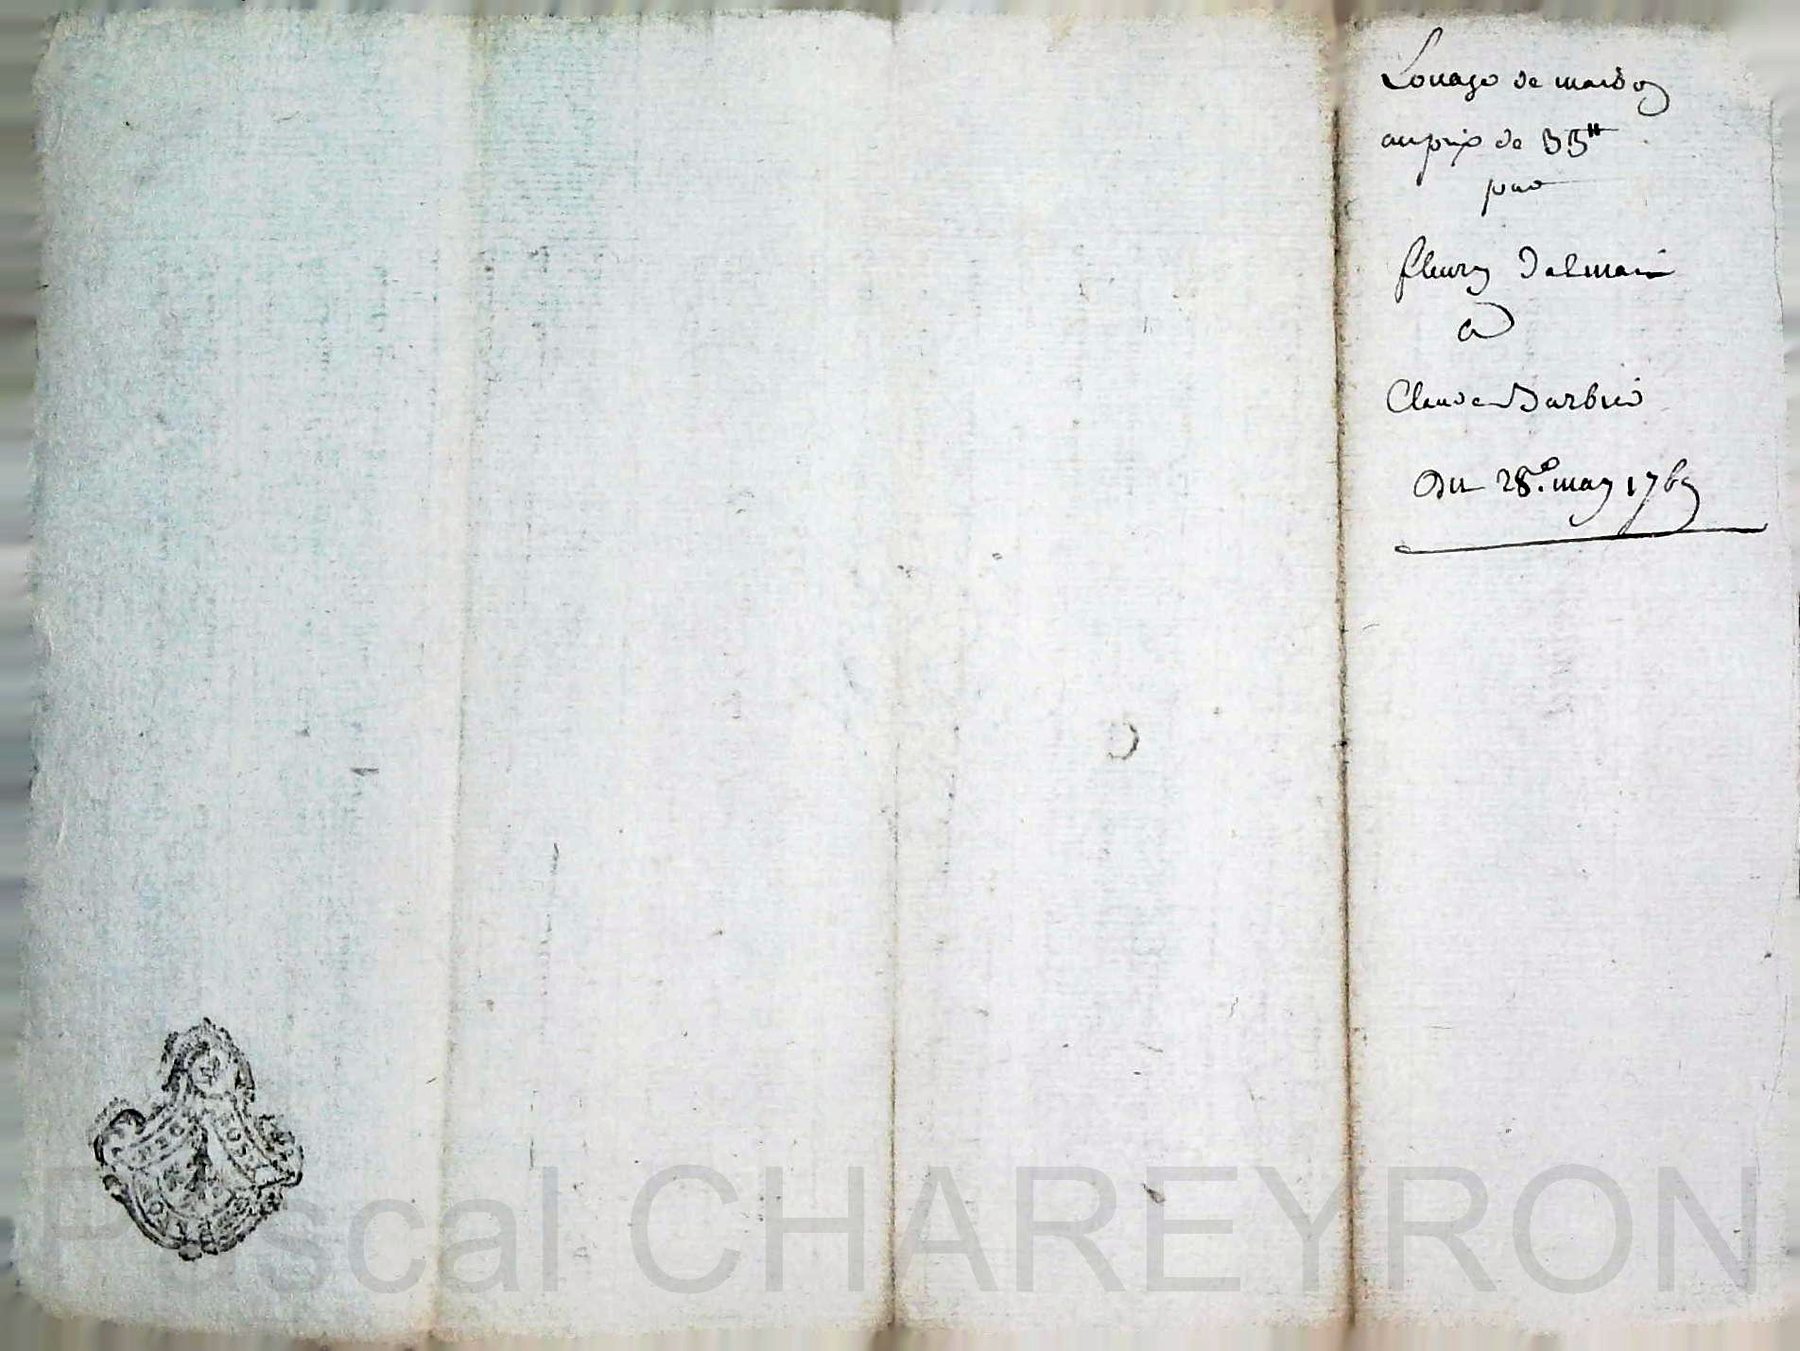 Louage de maison
au prix de 33<sup>tt</sup>
par
fleury Dalmais
a
Claude Barbier
Du 28.e may 1769
Pascal CHAREYRON